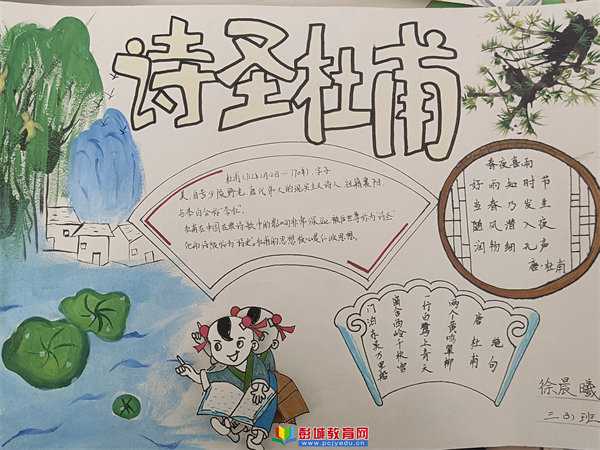 诗圣杜甫
杜甫(712年2月12日—770年)字子
美,自号少陵野老,唐代伟大的现实主义诗人,祖籍襄阳
与李白合称"李杜".
杜甫在中国古典诗歌中的影响非常深远,被后世尊称为"诗圣"
他的诗被称为"诗史",杜甫的思想核心是仁政思想.
春夜喜雨
好雨知时节
当春乃发生
随风潜入夜
润物细无声
唐·杜甫
绝句
唐 杜甫
两个黄鸣翠柳
一行白鹭上青天
窗含西岭千秋雪
门泊东吴万里船
徐晨曦
三(3)班
彭城教育网
www.pcjyedu.com